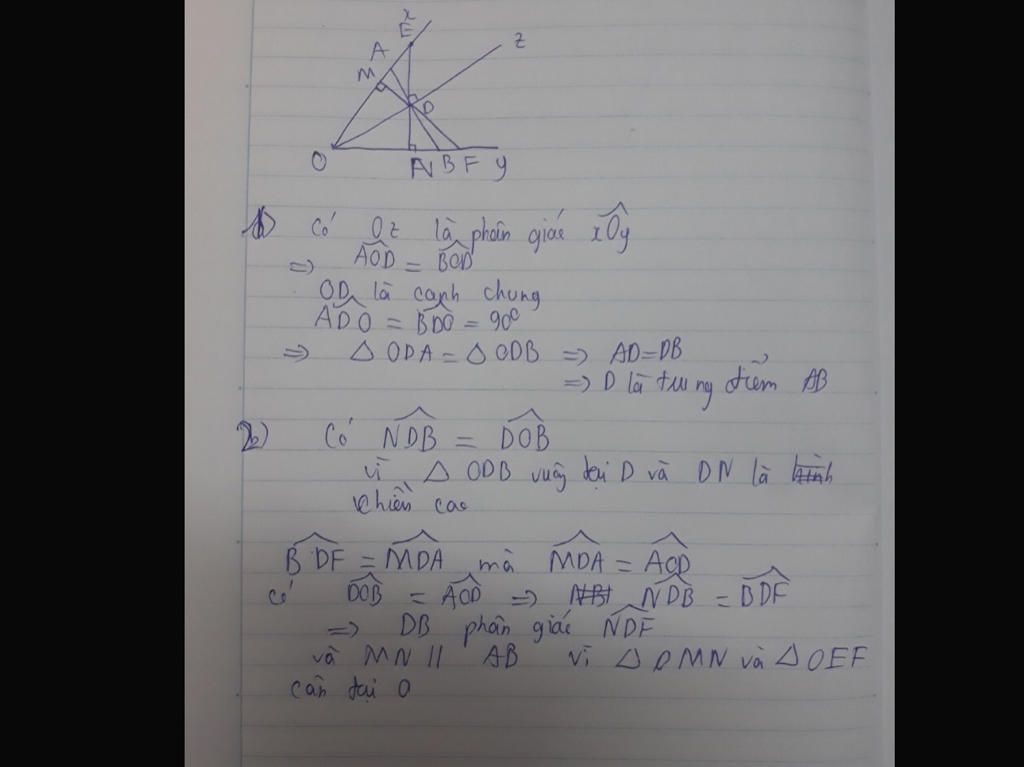 x
E
z
A
M
D
O
N B F y
1) Có Oz là phân giác xOy
⇒ AOD = BOD
OD là cạnh chung
ADO = BDO = 90°
⇒ △ ODA = △ ODB ⇒ AD=DB
⇒ D là trung điểm AB
2) Có NDB = DOB
vì △ ODB vuông tại D và DN là
chiều cao
BDF = MDA mà MDA = AOD
có DOB = AOD ⇒ NDB = BDF
⇒ DB phân giác NDF
và MN // AB vì △ OMN và △ OEF
cân tại O